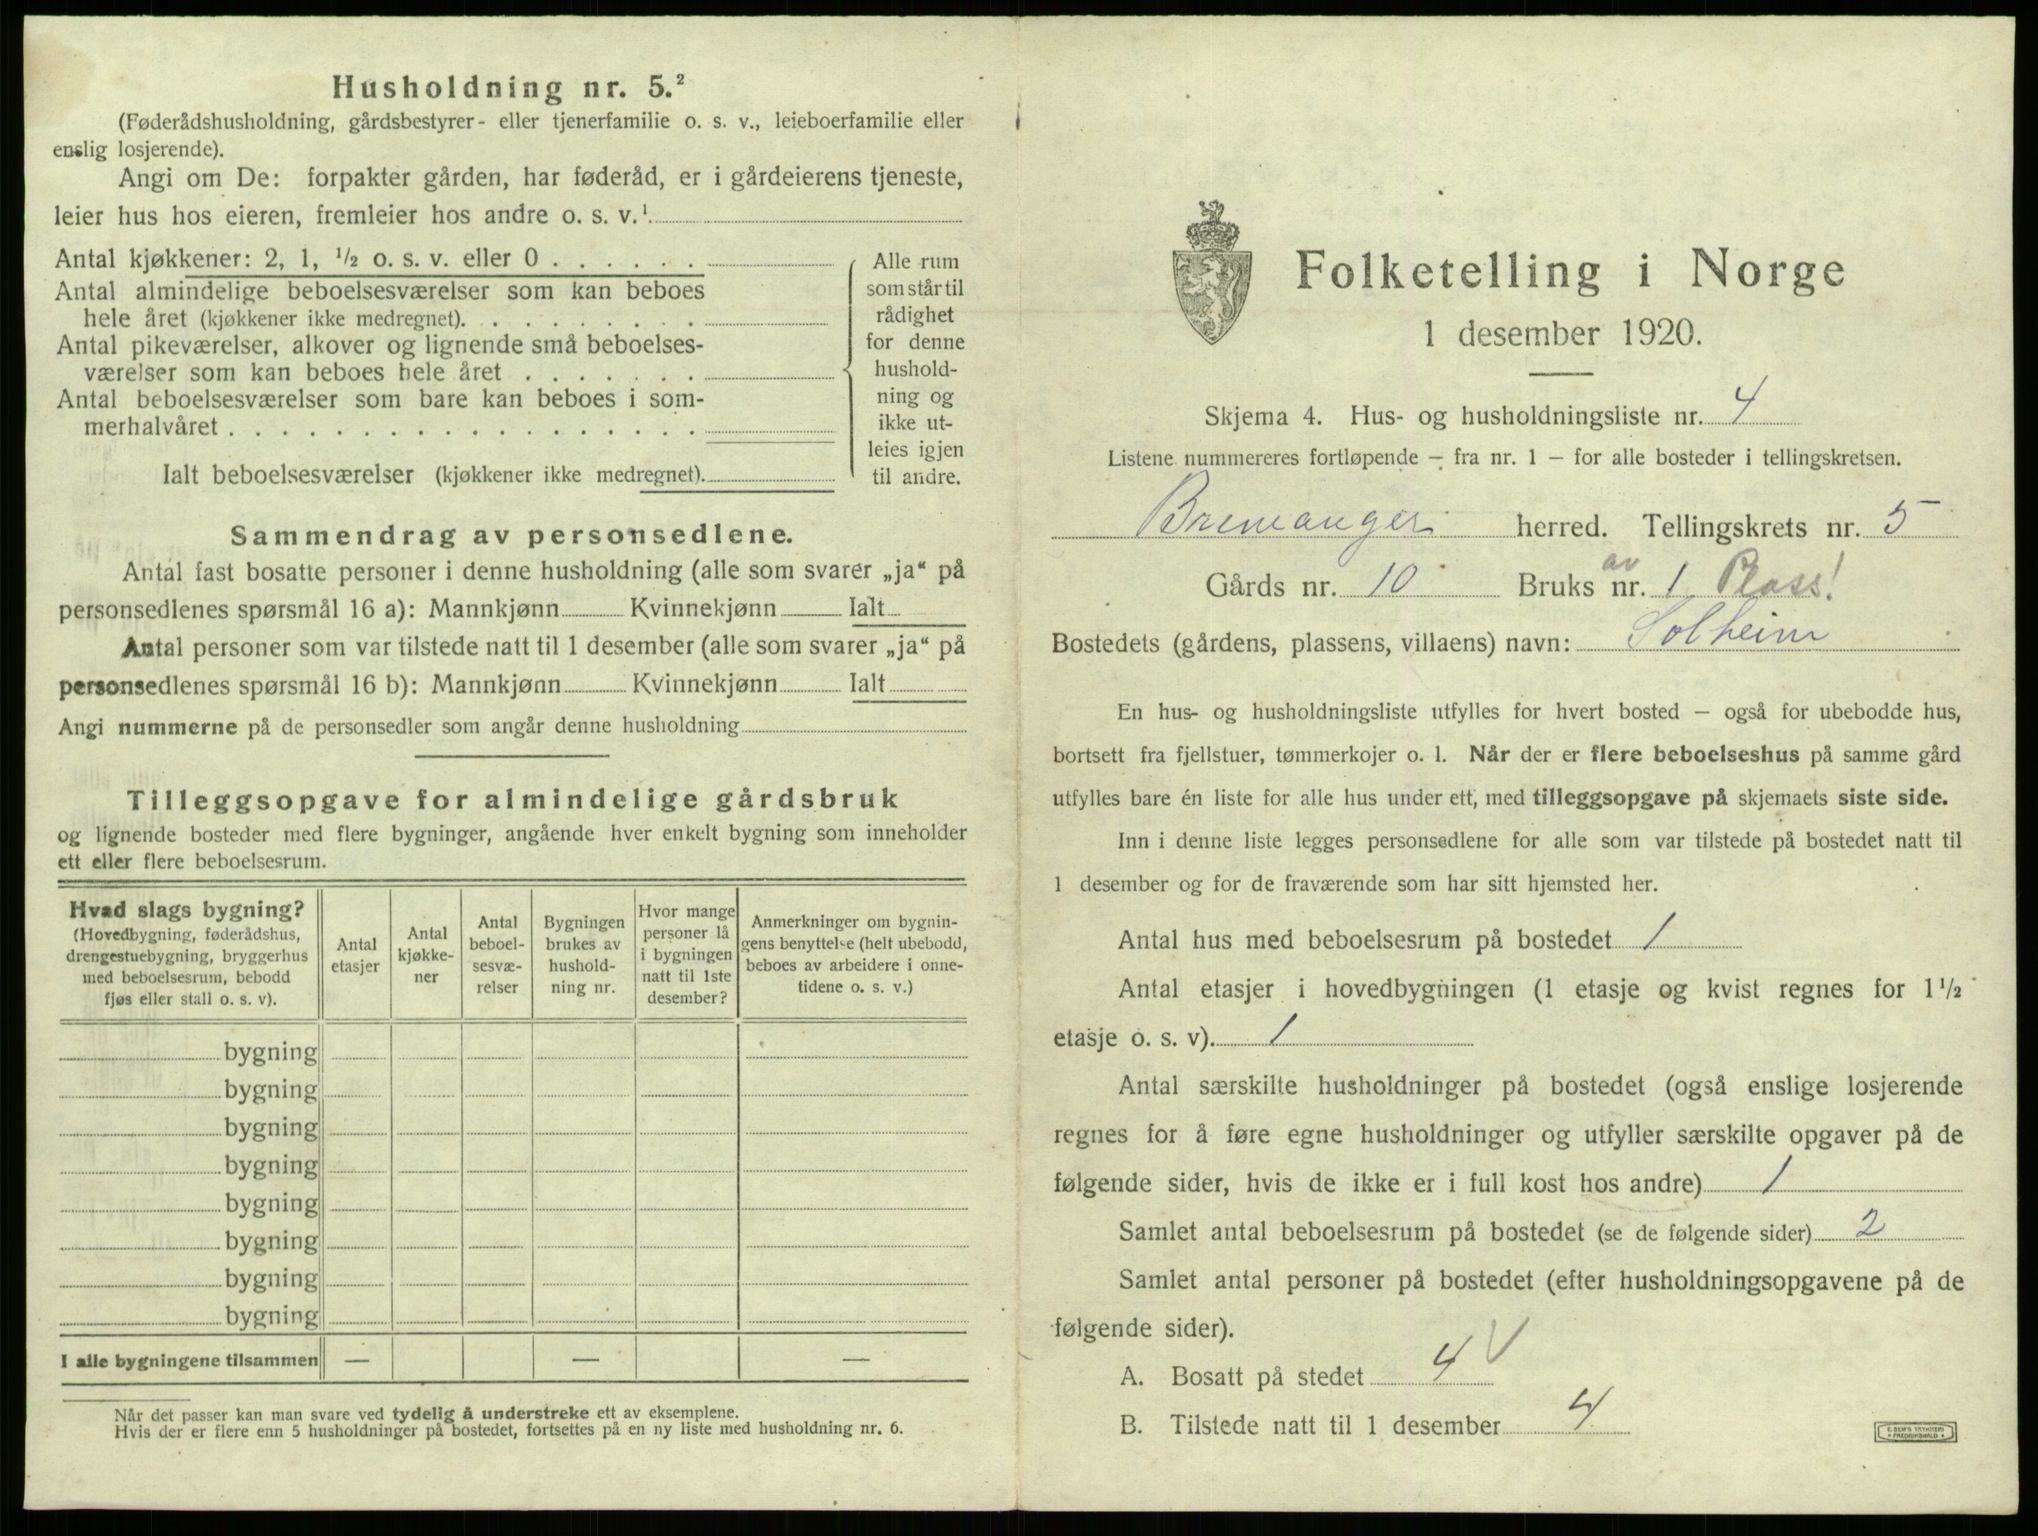 Husholdning nr. 5.²
(Føderådshusholdning, gårdsbestyrer- eller tjenerfamilie o. s. v., leieboerfamilie eller
enslig losjerende).
Angi om De: forpakter gården, har føderåd, er i gårdeierens tjeneste,
leier hus hos eieren, fremleier hos andre o. s. v.¹
Antal kjøkkener: 2, 1, ½ o. s. v. eller 0 . . . . . .
Antal almindelige beboelsesværelser som kan beboes
hele året (kjøkkener ikke medregnet). . . . . . . . .
Antal pikeværelser, alkover og lignende små beboelses-
værelser som kan beboes hele året . . . . . . .
Antal beboelsesværelser som bare kan beboes i som-
merhalvåret . . . . . . . . . . . . . . . . . .
Ialt beboelsesværelser (kjøkkener ikke medregnet).
Alle rum
som står til
rådighet
for denne
hushold-
ning og
ikke ut-
leies igjen
til andre.
Sammendrag av personsedlene.
Antal fast bosatte personer i denne husholdning (alle som svarer „ja“ på
personsedlenes spørsmål 16 a): Mannkjønn Kvinnekjønn Ialt
Antal personer som var tilstede natt til 1 desember (alle som svarer „ja“ på
personsedlenes spørsmål 16 b): Mannkjønn Kvinnekjønn Ialt
Angi nummerne på de personsedler som angår denne husholdning
Tilleggsopgave for almindelige gårdsbruk
og lignende bosteder med flere bygninger, angående hver enkelt bygning som inneholder
ett eller flere beboelsesrum.
Hvad slags bygning?
(Hovedbygning, føderådshus,
drengestuebygning, bryggerhus
med beboelsesrum, bebodd
fjøs eller stall o. s. v).
Antal
etasjer
Antal
kjøkke-
ner
Antal
beboel-
sesvæ-
relser
Bygningen
brukes av
hushold-
ning nr.
Hvor mange
personer lå
i bygningen
natt til 1ste
desember?
Anmerkninger om bygnin-
gens benyttelse (helt ubebodd,
beboes av arbeidere i onne-
tidene o. s. v.)
bygning
bygning
bygning
bygning
bygning
bygning
bygning
bygning
I alle bygningene tilsammen — — —
Når det passer kan man svare ved tydelig å understreke ett av eksemplene.
Hvis der er flere enn 5 husholdninger på bostedet, fortsettes på en ny liste med husholdning nr. 6.
Folketelling i Norge
1 desember 1920.
Skjema 4. Hus- og husholdningsliste nr. 4
Listene nummereres fortløpende – fra nr. 1 – for alle bosteder i tellingskretsen.
Bremanger herred. Tellingskrets nr. 5
Gårds nr. 10 Bruks nr. av 1 Plass!
Bostedets (gårdens, plassens, villaens) navn: Solheim
En hus- og husholdningsliste utfylles for hvert bosted – også for ubebodde hus,
bortsett fra fjellstuer, tømmerkojer o. l. Når der er flere beboelseshus på samme gård
utfylles bare én liste for alle hus under ett, med tilleggsopgave på skjemaets siste side.
Inn i denne liste legges personsedlene for alle som var tilstede på bostedet natt til
1 desember og for de fraværende som har sitt hjemsted her.
Antal hus med beboelsesrum på bostedet 1
Antal etasjer i hovedbygningen (1 etasje og kvist regnes for 1½
etasje o. s. v). 1
Antal særskilte husholdninger på bostedet (også enslige losjerende
regnes for å føre egne husholdninger og utfyller særskilte opgaver på de
følgende sider, hvis de ikke er i full kost hos andre) 1
Samlet antal beboelsesrum på bostedet (se de følgende sider) 2
Samlet antal personer på bostedet (efter husholdningsopgavene på de
følgende sider).
A. Bosatt på stedet 4 V
B. Tilstede natt til 1 desember 4
E. SEM'S TRYKKERI
FREDRIKSHALD